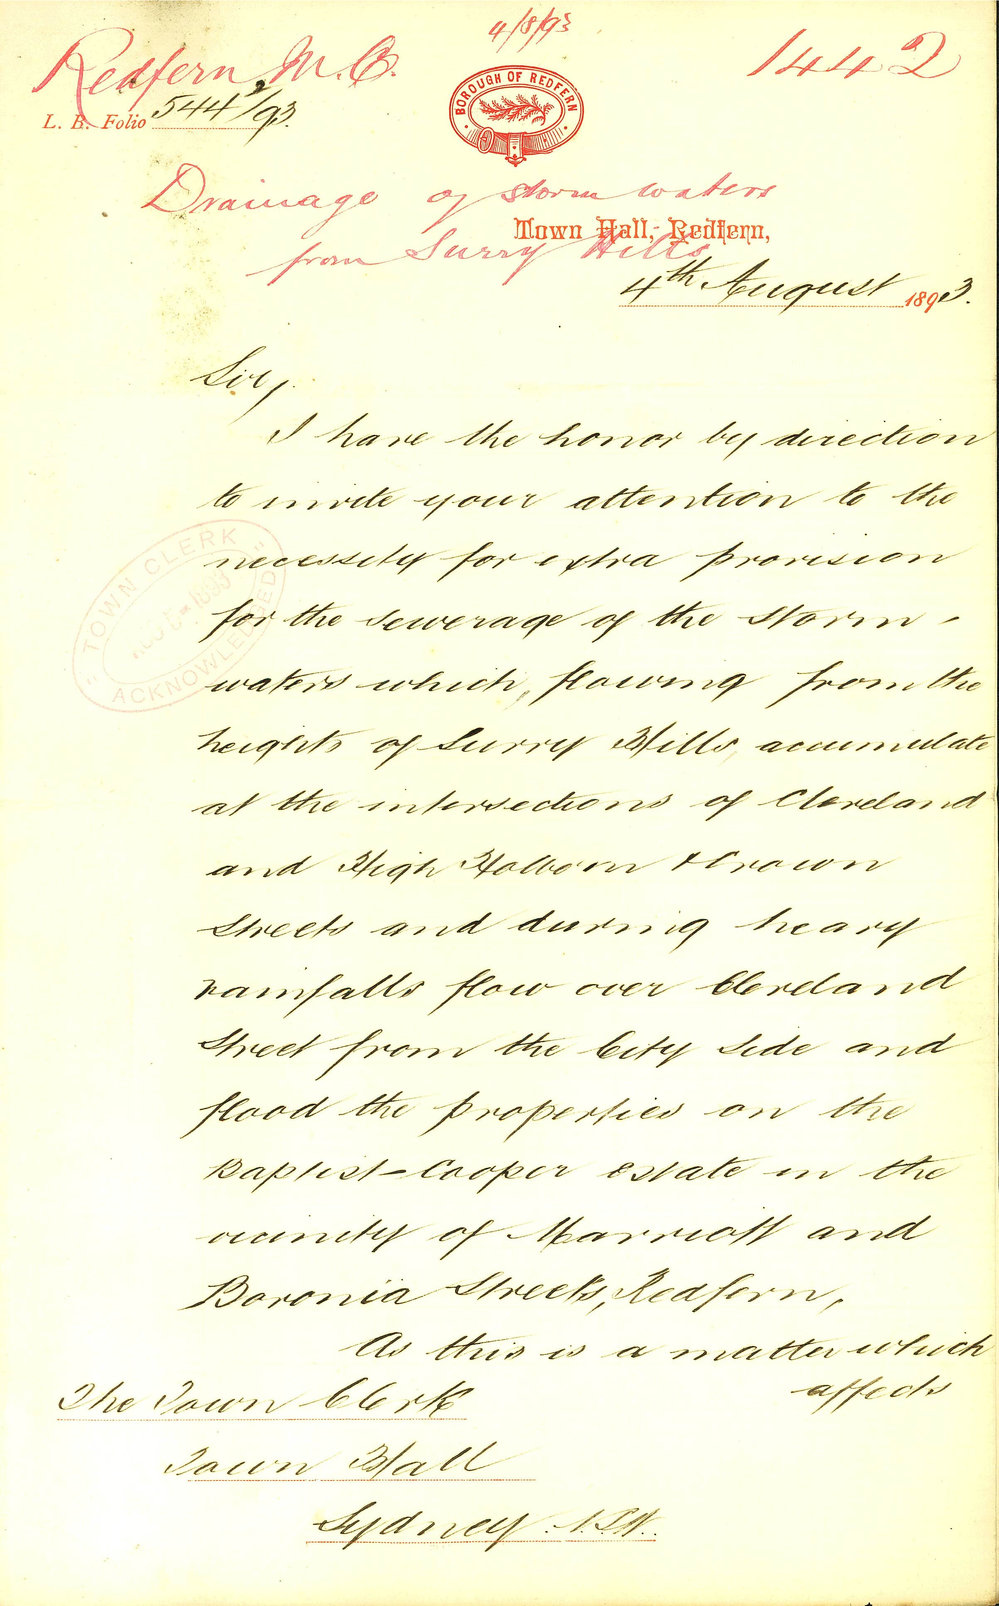 4/8/93
Redfern M.C.
1442
L. B. Folio 544 2/93.
BOROUGH OF REDFERN
Drainage of storm waters
Town Hall, Redfern,
from Surry Hills
4th August 1893.
Sir,
I have the honor by direction
to invite your attention to the
necessity for extra provision
for the sewerage of the storm-
waters which, flowing from the
heights of Surry Hills, accumulate
at the intersections of Cleveland
and High Holborn & Crown
Streets and during heavy
rainfalls flow over Cleveland
Street from the City side and
flood the properties on the
Baptist-Cooper Estate in the
vicinity of Marriott and
Boronia Streets, Redfern,
As this is a matter which
affects
The Town Clerk
Town Hall
Sydney. N.S.W.
"TOWN CLERK"
1893
ACKNOWLEDGED